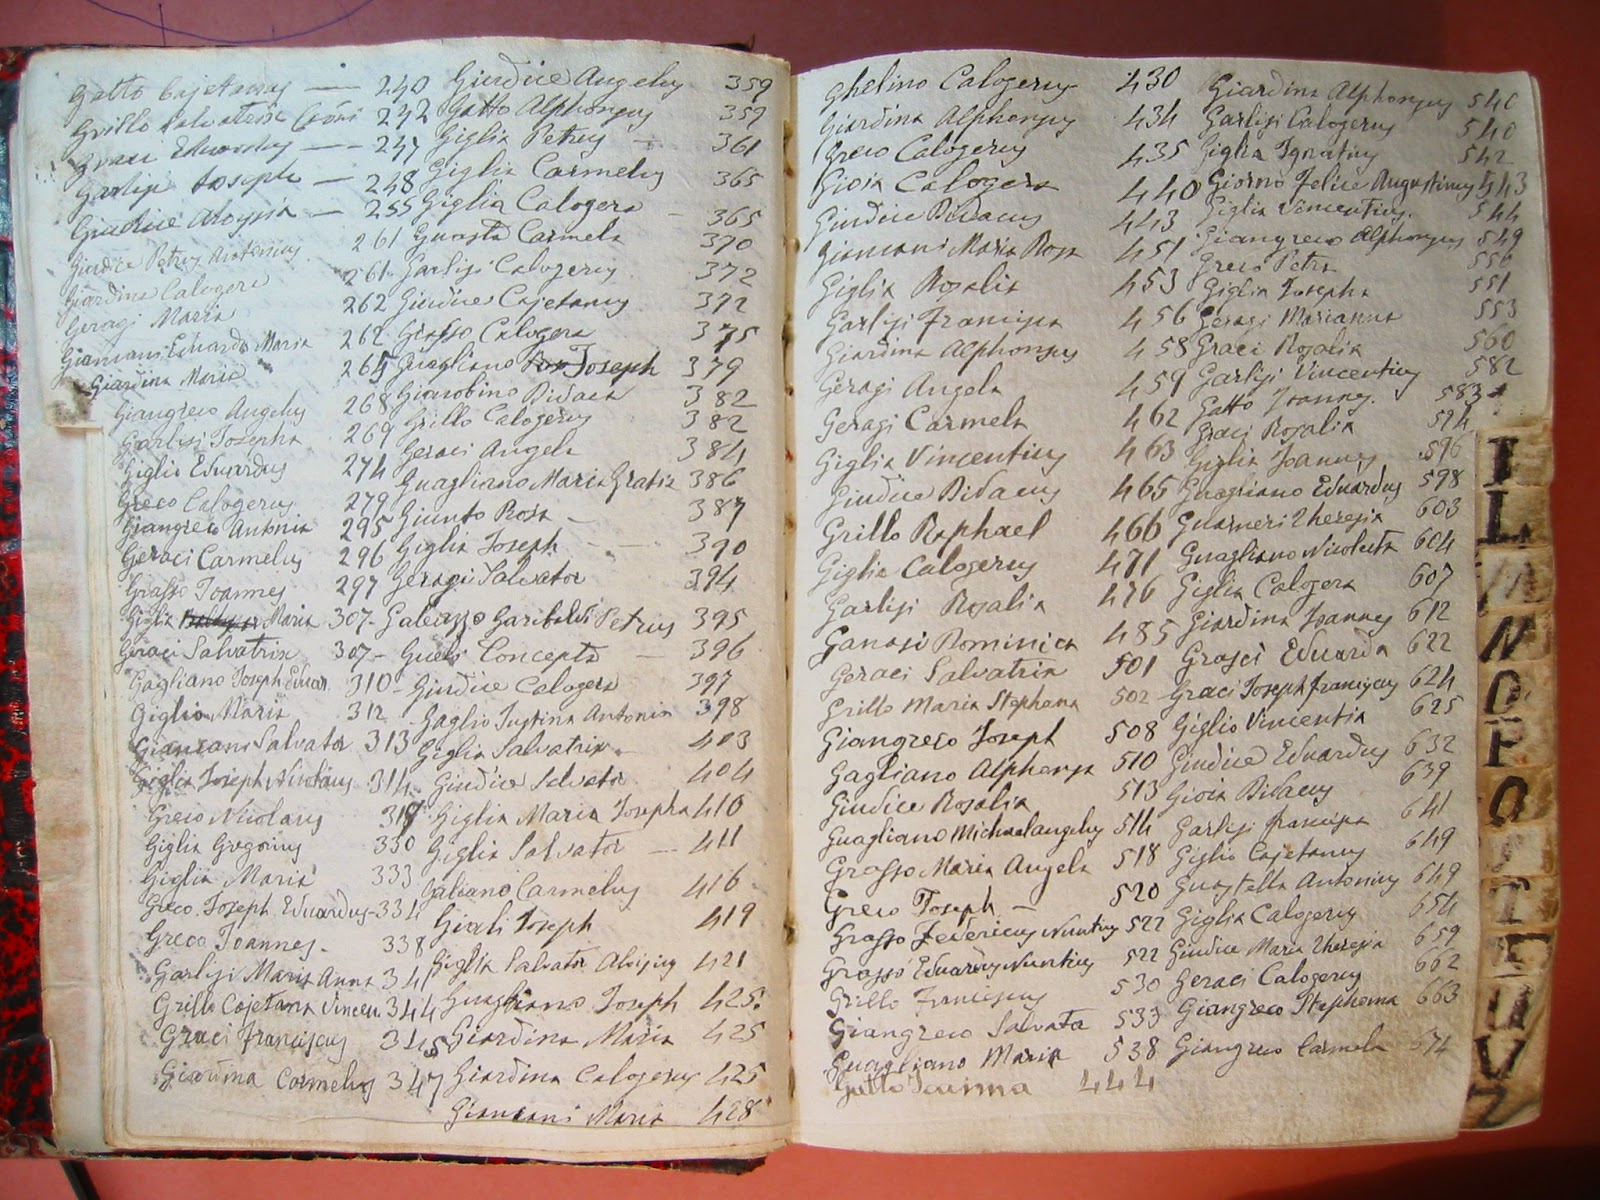 Gatto Cajetanus — 240
Grillo Salvatrix 242
Graci Eduardus — 247
Garlisi Joseph — 248
Giudice Aloysia — 255
Giudice Petrus Antonius 261
Giardina Calogera 261
Geraci Maria 262
Giancani Eduarda Maria 262
Giardina Maria 265
Giangreco Angelus 268
Garlisi Josepha 269
Giglio Eduardus 274
Greco Calogerus 279
Giangreco Antonia 295
Geraci Carmelus 296
Grasso Joannes 297
Giglia Maria 307
Geraci Salvatrix 307
Gagliano Joseph Eduar. 310
Giglio Maria 312
Giancani Salvator 313
Giglia Joseph Nicolaus 314
Greco Nicolaus 319
Giglia Gregorius 330
Giglia Maria 333
Greco Joseph Eduardus 334
Greco Joannes 338
Garlisi Maria Anna 341
Grillo Cajetana Vincen 344
Graci Franciscus 345
Giardina Carmelus 347
Giudice Angelus 359
Gatto Alphonsus 359
Giglia Petrus — 361
Giglia Carmelus 365
Giglia Calogera — 365
Guasta Carmela 370
Garlisi Calogerus 372
Giudice Cajetanus 372
Grasso Calogera 375
Guagliano Joseph 379
Giacobino Bidaca 382
Grillo Calogerus 382
Geraci Angela 384
Guagliano Maria Gratia 386
Giunto Rosa — 387
Giglia Joseph — 390
Geraci Salvator 394
Galeazzo Garibaldi Petrus 395
Gueli Concepta — 396
Giudice Calogera 397
Gaglio Justina Antonia 398
Giglia Salvatrix 403
Giudice Salvator 404
Giglia Maria Josepha 410
Giglia Salvator — 411
Galiano Carmelus 416
Joseph 419
Giglia Salvator Aloisius 421
Guagliano Joseph 425
Giardina Maria 425
Giardina Calogerus 425
Giancani Maria 428
Ghelino Calogerus 430
Giardina Alphonsus 434
Greco Calogerus 435
Gioia Calogera 440
Giudice Bidacus 443
Giancani Maria Rosa 451
Giglia Rosalia 453
Garlisi Francisca 456
Giardina Alphonsus 458
Geraci Angela 459
Geraci Carmela 462
Giglia Vincentius 463
Giudice Bidacus 465
Grillo Raphael 466
Giglia Calogerus 471
Garlisi Rosalia 476
Ganasi Dominica 485
Geraci Salvatrix 501
Grillo Maria Stephana 502
Giangreco Joseph 508
Gagliano Alphonsa 510
Giudice Rosalia 513
Guagliano Michaelangelus 514
Grasso Maria Angela 518
Greco Joseph — 520
Grasso Federicus Nuntius 522
Grasso Eduardus Nuntius 522
Grillo Franciscus 530
Giangreco Salvata 533
Guagliano Maria 538
Gatto 444
Giardina Alphonsus 540
Garlisi Calogerus 540
Giglia Ignatius 542
Giorno Felice Augustinus 543
Giglia Vincentius. 544
Giangreco Alphonsus 549
Greco Petra 550
Giglia Josepha 551
Geraci Marianna 553
Graci Rosalia 560
Garlisi Vincentius 582
Gatto Joannes. 583
Graci Rosalia 594
Giglia Joannes 596
Guagliano Eduardus 598
Guarneri Theresia 603
Guagliano Nicoletta 604
Giglia Calogera 607
Giardina Joannes 612
Grasci Eduarda 622
Graci Joseph Franciscus 624
Giglio Vincentia 625
Giudice Eduardus 632
Gioia Bidacus 639
Garlisi Francisca 641
Giglio Cajetanus 649
Guastella Antonius 649
Giglia Calogerus 654
Giudice Maria Theresia 659
Geraci Calogerus 662
Giangreco Stephana 663
Giangreco Carmela 674
I
L
M
N
O
P
Q
T
U
V
Z